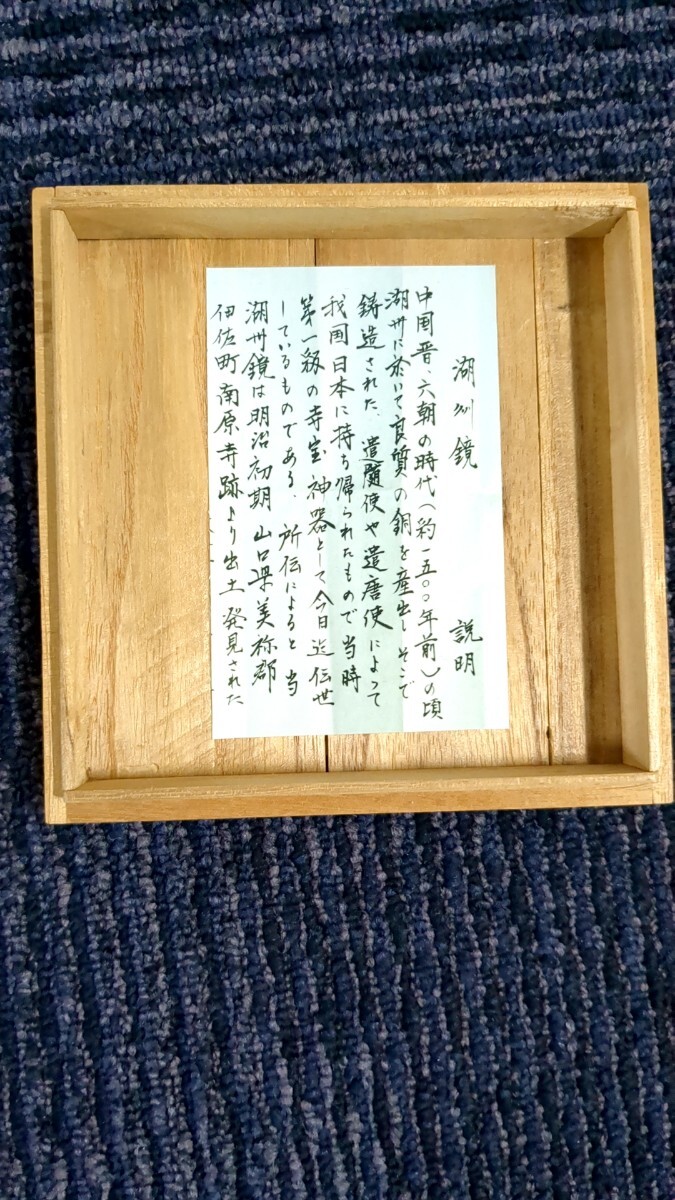 湖州鏡 説明
中国晋、六朝の時代(約一五〇〇年前)の頃
湖州に於いて良質の銅を産出しそこで
鋳造された、遣隨使や遣唐使によって
我国日本に持ち帰られたもので当時
第一級の寺宝神器として今日迄伝世
しているものである、所伝によると当
湖州鏡は明治初期 山口県美祢郡
伊佐町南原寺跡より出土発見された